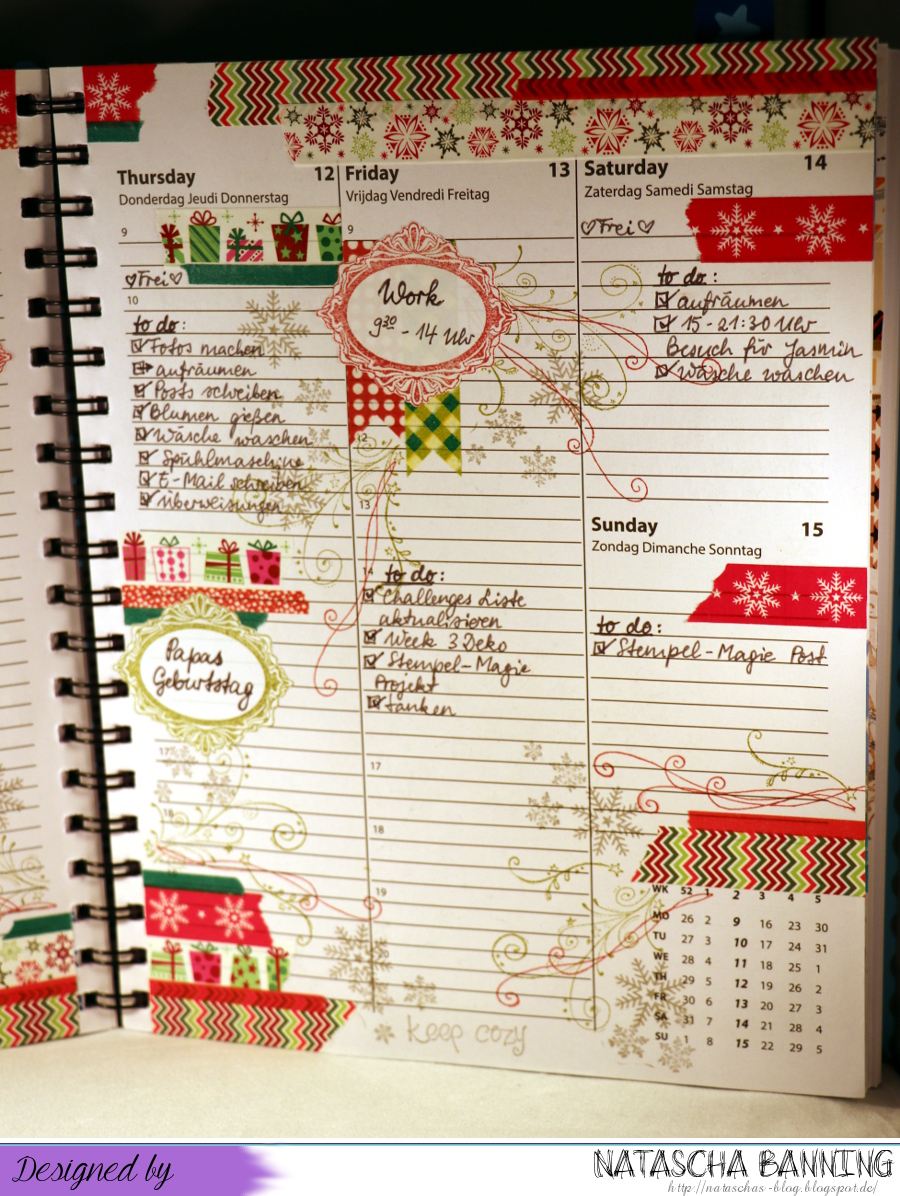 Thursday 12
Donderdag Jeudi Donnerstag
9
♡Frei♡
10
to do:
Fotos machen
aufräumen
Posts schreiben
Blumen gießen
Wäsche waschen
Spühlmaschine
E-Mail schreiben
Überweisungen
Papas
Geburtstag
17
18
Friday 13
Vrijdag Vendredi Freitag
9
Work
9³⁰ - 14 Uhr
12
13
14
to do:
Challenges Liste
aktualisieren
Week 3 Deko
Stempel-Magie
Projekt
tanken
17
18
19
20
keep cozy
Saturday 14
Zaterdag Samedi Samstag
♡Frei♡
to do:
aufräumen
15-21:30 Uhr
Besuch für Jasmin
Wäsche waschen
Sunday 15
Zondag Dimanche Sonntag
to do:
Stempel-Magie Post
WK 52 1 2 3 4 5
MO 26 2 9 16 23 30
TU 27 3 10 17 24 31
WE 28 4 11 18 25 1
TH 29 5 12 19 26 2
FR 30 6 13 20 27 3
SA 31 7 14 21 28 4
SU 1 8 15 22 29 5
Designed by
NATASCHA BANNING
http://nataschas-blog.blogspot.de/